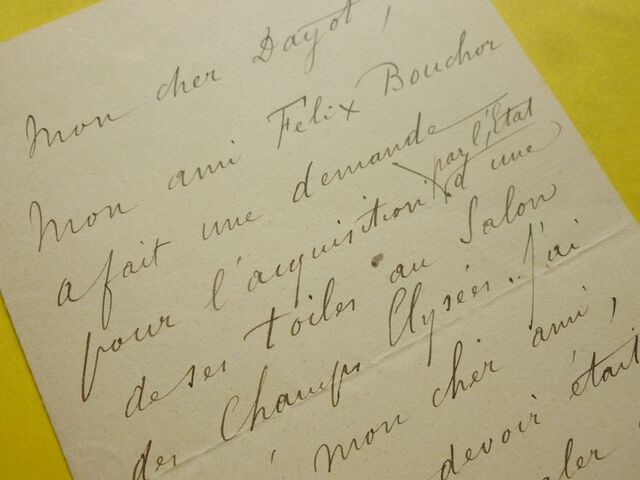 Mon cher Dayot,
Mon ami Félix Bouchor
a fait une demande
par l'État
pour l'acquisition d'une
de ses toiles au Salon
des Champs Elysées. J'ai
mon cher ami,
devoir était